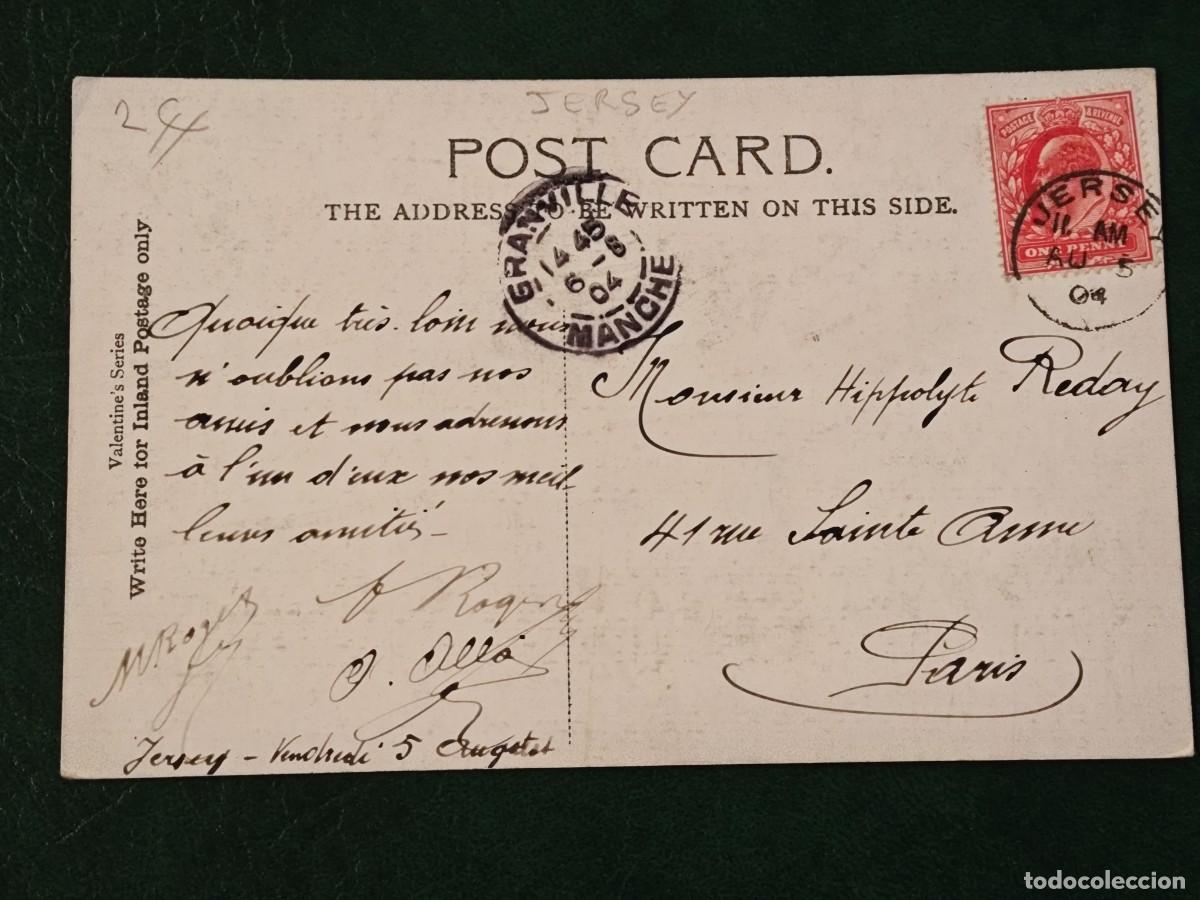 2
JERSEY
POST CARD.
THE ADDRESS TO BE WRITTEN ON THIS SIDE.
POSTAGE & REVENUE
ONE PENNY
JERSEY
11 AM
AU 5
04
GRANVILLE
14 45
6 - 8
04
MANCHE
Valentine's Series
Write Here for Inland Postage only
Quoique très loin nous
n'oublions pas nos
amis et nous adressons
à l'un d'eux nos meil-
leures amitiés -
M Roger
Roger
Jersey - Vendredi 5
Monsieur Hippolyte Reday
41 rue Sainte Anne
Paris
todocoleccion